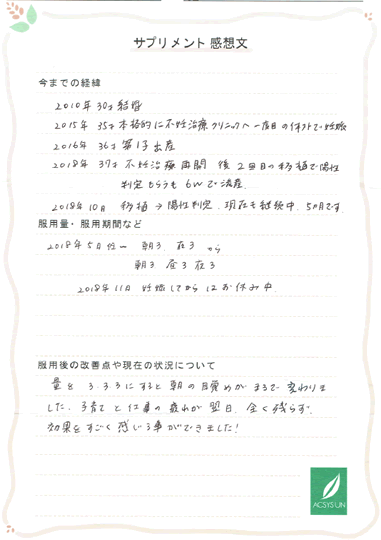 サプリメント 感想文
今までの経緯
2010年 30才 結婚
2015年 35才 本格的に不妊治療クリニックへ 一度目の体外で妊娠
2016年 36才 第1子出産
2018年 37才 不妊治療再開 後 2回目の移植で陽性
判定もらうも 6wで流産
2018年10月 移植 → 陽性判定. 現在も継続中. 5ヵ月です.
服用量・服用期間など
2018年5月 朝3 夜3 から
朝3 昼3 夜3
2018年11月 妊娠してからはお休み中
服用後の改善点や現在の状況について
量を 3.3.3にすると 朝の目覚めが まるで変わりま
した. 子育てと仕事の疲れが翌日. 全く残らず.
効果をすごく感じる事ができました!
ACSYSUN